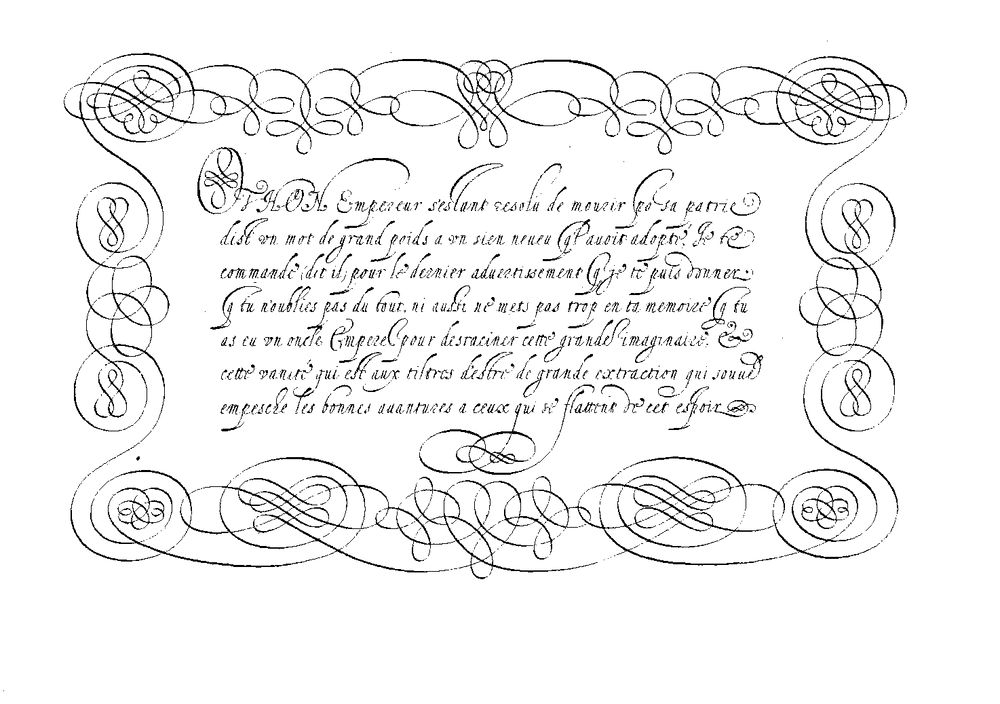 OTHON Empereur s'estant resolu de mourir po sa patrie
dist vn mot de grand poids a vn sien neueu q̃l auoit adopté. Je te
commande, dit il, pour le dernier aduertissement q̃ je te puis donner
q̃ tu n'oublies pas du tout, ni aussi ne mets pas trop en ta memoire q̃ tu
as eu vn oncle Emper pour desraciner cette grande imaginaire. &
cette vanité qui est aux tiltres d'estre de grande extraction qui souuẽ
empesche les bonnes auantures a ceux qui se flattent de cet espoir